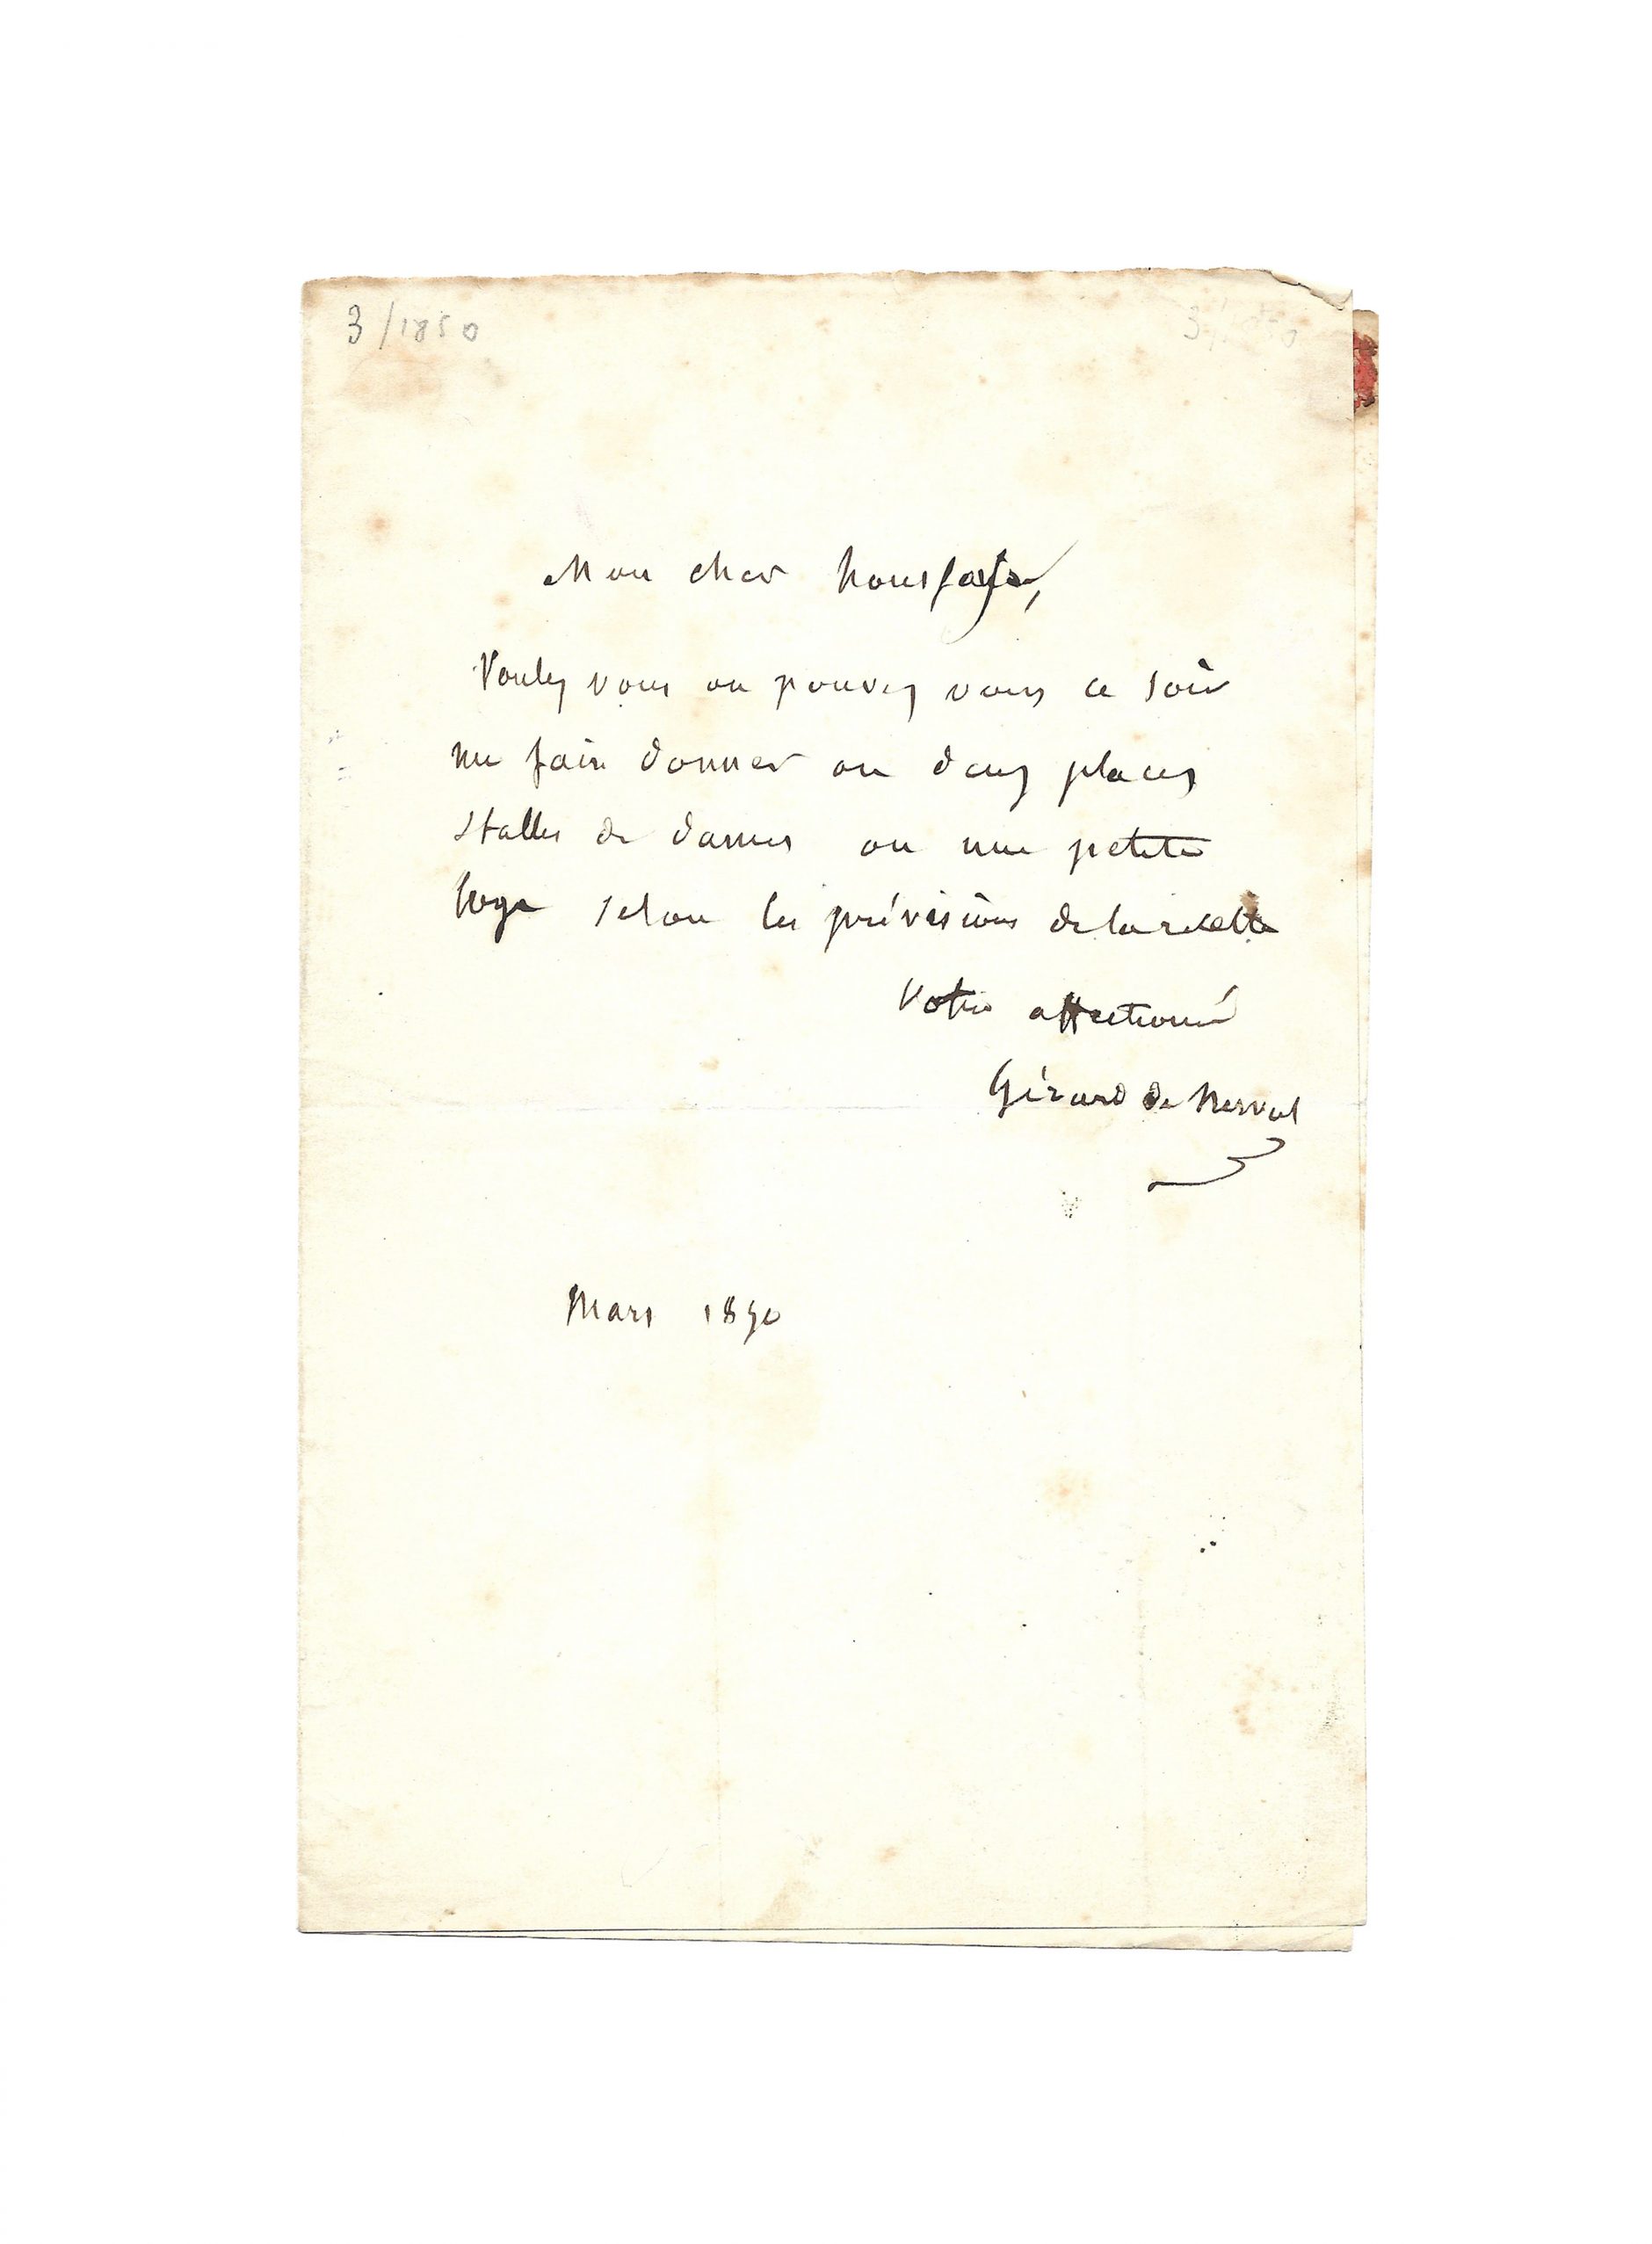 3/1850
Mon cher houssaye,
Voulez vous ou pouvez vous ce soir
me faire donner ou deux places
stalles de dames ou une petite
loge selon les prévisions de la recette
Votre affectionné
Gérard de Nerval
Mars 1850